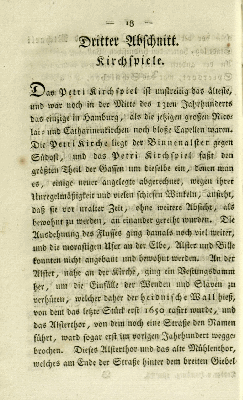 — 18 —
Dritter Abschnitt.
Kirchspiele.
Das Petri Kirchspiel ist unstreitig das älteste,
und war noch in der Mitte des 13ten Jahrhunderts
das einzige in Hamburg, als die jetzigen großen Nico-
lai- und Catharinenkirchen noch bloße Capellen waren.
Die Petri Kirche liegt der Binnenalster gegen
Südost, und das Petri Kirchspiel faßt den
größten Theil der Gassen um dieselbe ein, denen man
es, einige neuer angelegte abgerechnet, wegen ihrer
Unregelmäßigkeit und vielen schiefen Winkeln, ansieht,
daß sie vor uralter Zeit, ohne weitere Absicht, als
bewohnt zu werden, an einander gereiht wurden. Die
Ausdehnung des Flusses ging damals noch viel weiter,
und die morastigen Ufer an der Elbe, Alster und Bille
konnten nicht angebaut und bewohnt werden. An der
Alster, nahe an der Kirche, ging ein Festungsdamm
her, um die Einfälle der Wenden und Slaven zu
verhüten, welcher daher der heidnische Wall hieß,
von dem das letzte Stück erst 1650 rasirt wurde, und
das Alsterthor, von dem noch eine Straße den Namen
führt, ward sogar erst im vorigen Jahrhundert wegge-
brochen. Dieses Alsterthor und das alte Mühlenthor,
welches am Ende der Straße hinter dem breiten Giebel